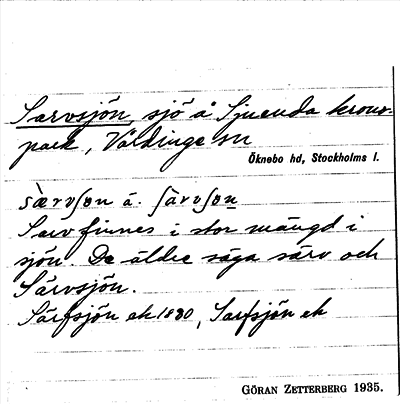 Sarvsjön, sjö å Sjuenda krono-
park, Vårdinge sn
Öknebo hd, Stockholms l.
Sarv finnes i stor mängd i
sjön. De äldre säga särv och
Särvsjön.
Särfsjön ek 1880, Sarfsjön ek
GÖRAN ZETTERBERG 1935.